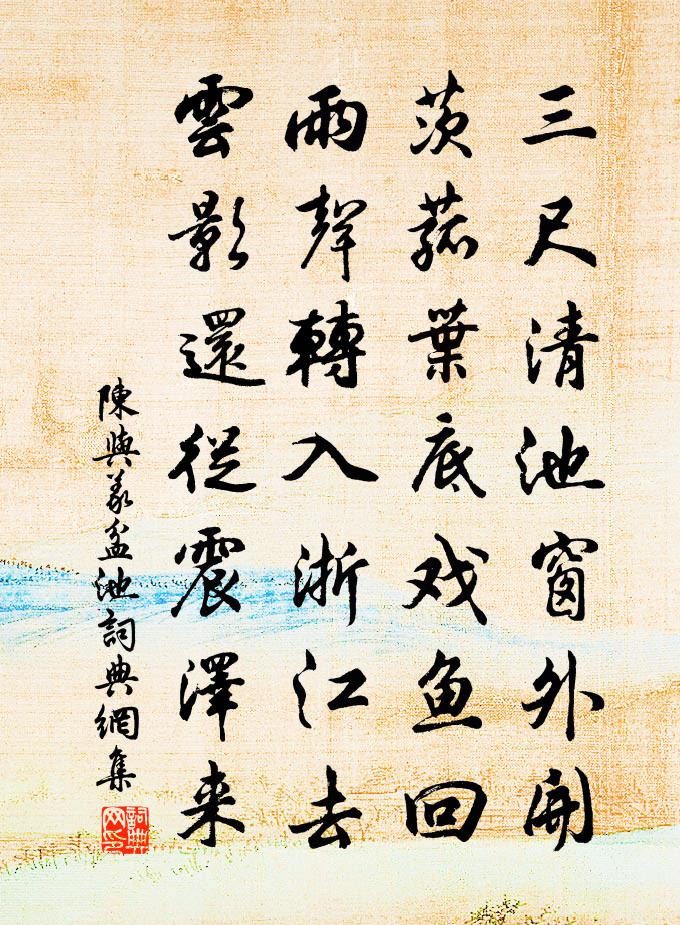 三尺清池窗外開
茨菰葉底戏鱼回
雨聲轉入浙江去
雲影還從震澤来
陳與義盆池詞典網集
詞典网印